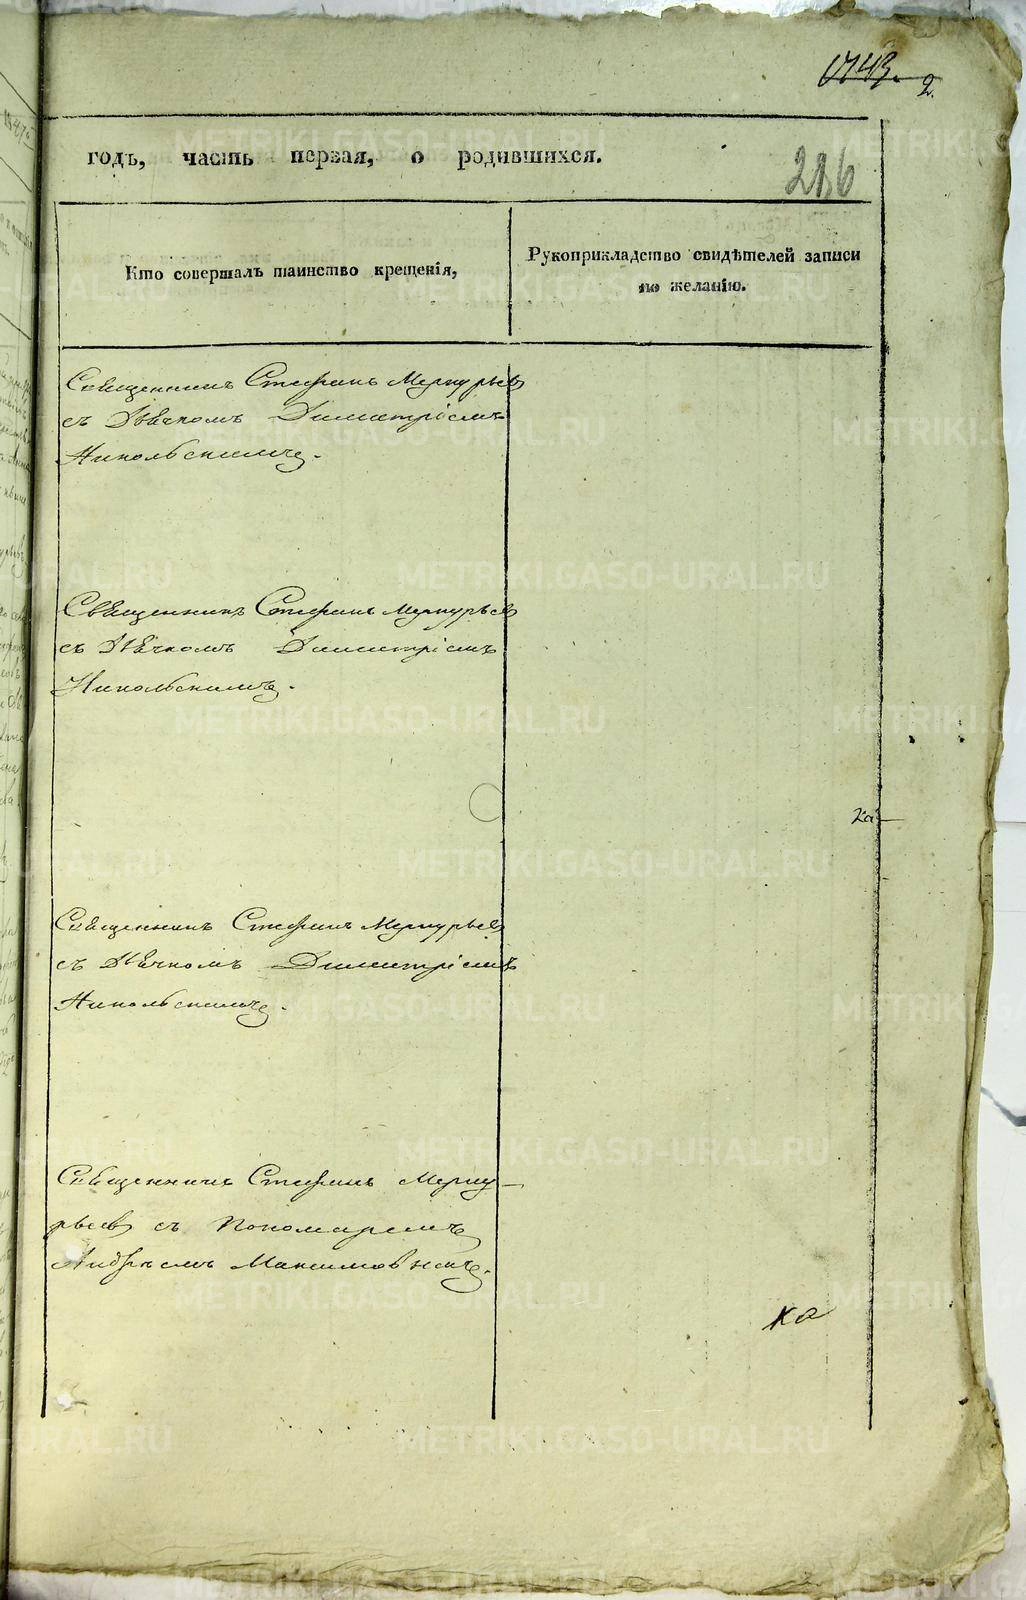 2.
годъ, часть первая, о родившихся.
216
Кто совершалъ таинство крещенія,
Рукоприкладство свидѣтелей записи
по желанію.
Священникъ Стефанъ Меркурьевъ
съ Дьячкомъ Димитріемъ
Никольскимъ.
Священникъ Стефанъ Меркурьевъ
съ Дьячкомъ Димитріемъ
Никольскимъ.
Священникъ Стефанъ Меркурьевъ
съ Дьячкомъ Димитріемъ
Никольскимъ.
Священникъ Стефанъ Мерку-
рьевъ съ Пономаремъ
Андреемъ Максимовымъ.
ка
METRIKI.GASO-URAL.RU